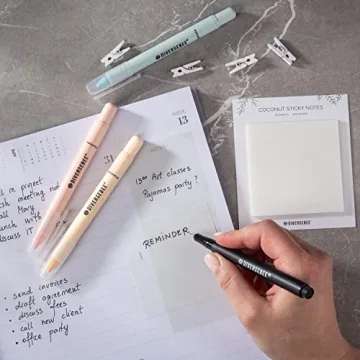 DIVERSEBEE
COCONUT STICKY NOTES
DIVERSEBEE
13
31
DIVERSEBEE
DIVERSEBEE
13:00 Art classes
Pajamas party?
REMINDER
DIVERSEBEE
project
meeting
call Mary
lunch with
discuss IT
• send invoices
• draft agreement
• discuss fees
• call new client
• office party